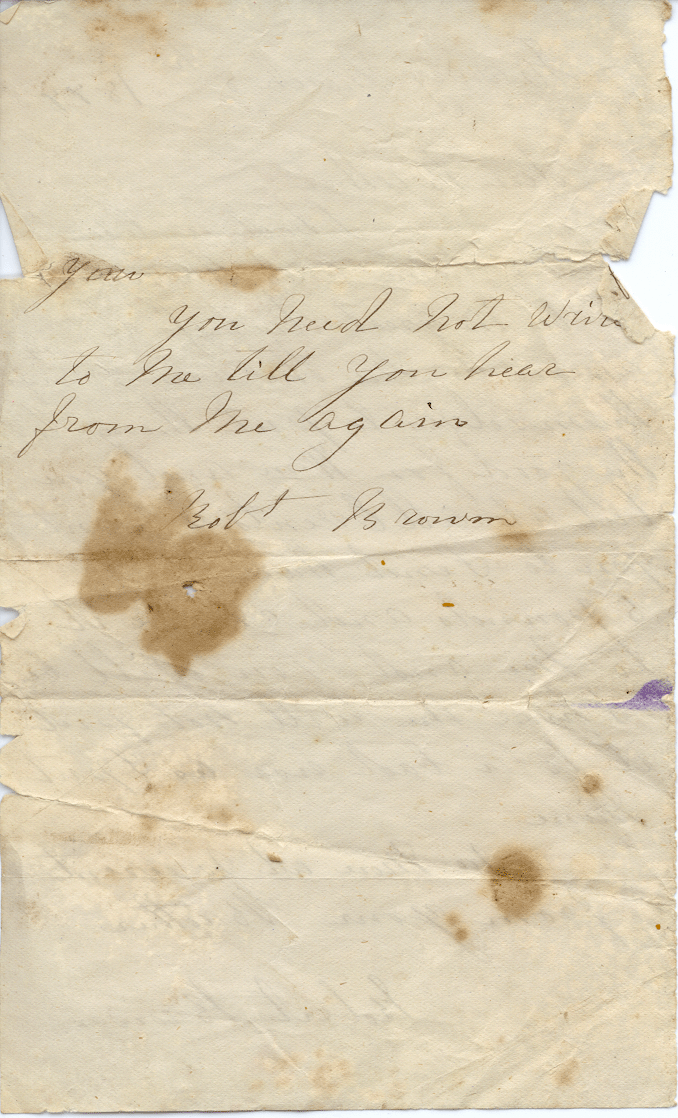 your
you need not Wri
to Me till you hear
from Me again
Robt Brown